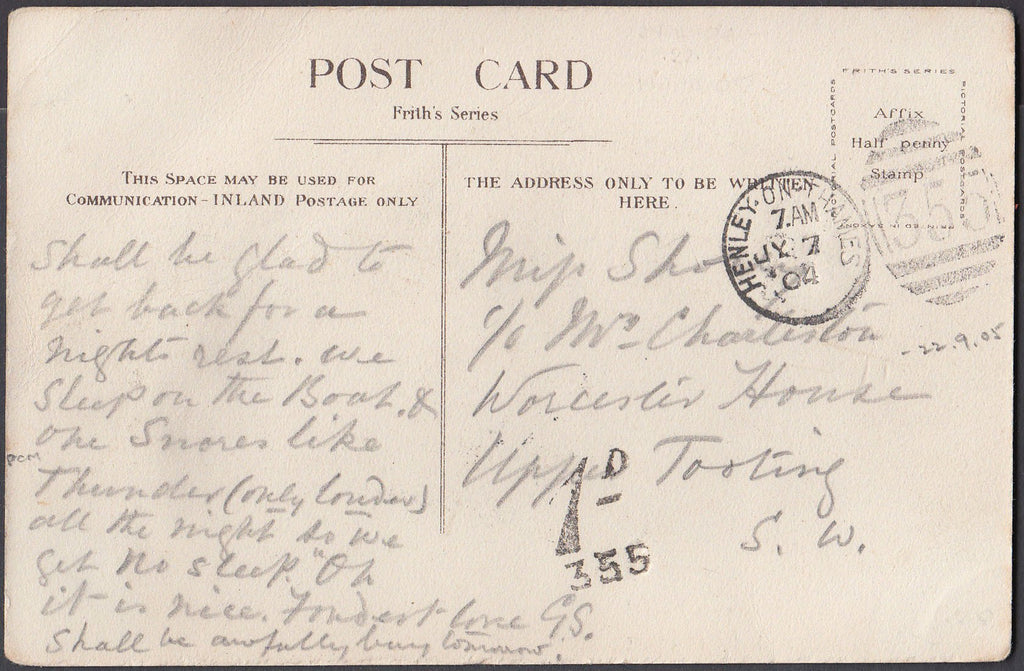 POST CARD
Frith's Series
THIS SPACE MAY BE USED FOR
COMMUNICATION - INLAND POSTAGE ONLY
THE ADDRESS ONLY TO BE WRITTEN
HERE.
FRITH'S SERIES
Affix
Half penny
Stamp
HENLEY-ON-THAMES
7.AM
JY 7
04
355
Shall be glad to
get back for a
nights rest. we
sleep on the Boat. &
one Snores like
Thunder (only louder)
all the night so we
get no sleep. "Oh
it is nice. Fondest love GS.
Shall be awfully busy tomorrow.
Miss
c/o Mrs Charleston
Worcester House
Upper Tooting
S. W.
- 22.9.05
pcm
1D
355